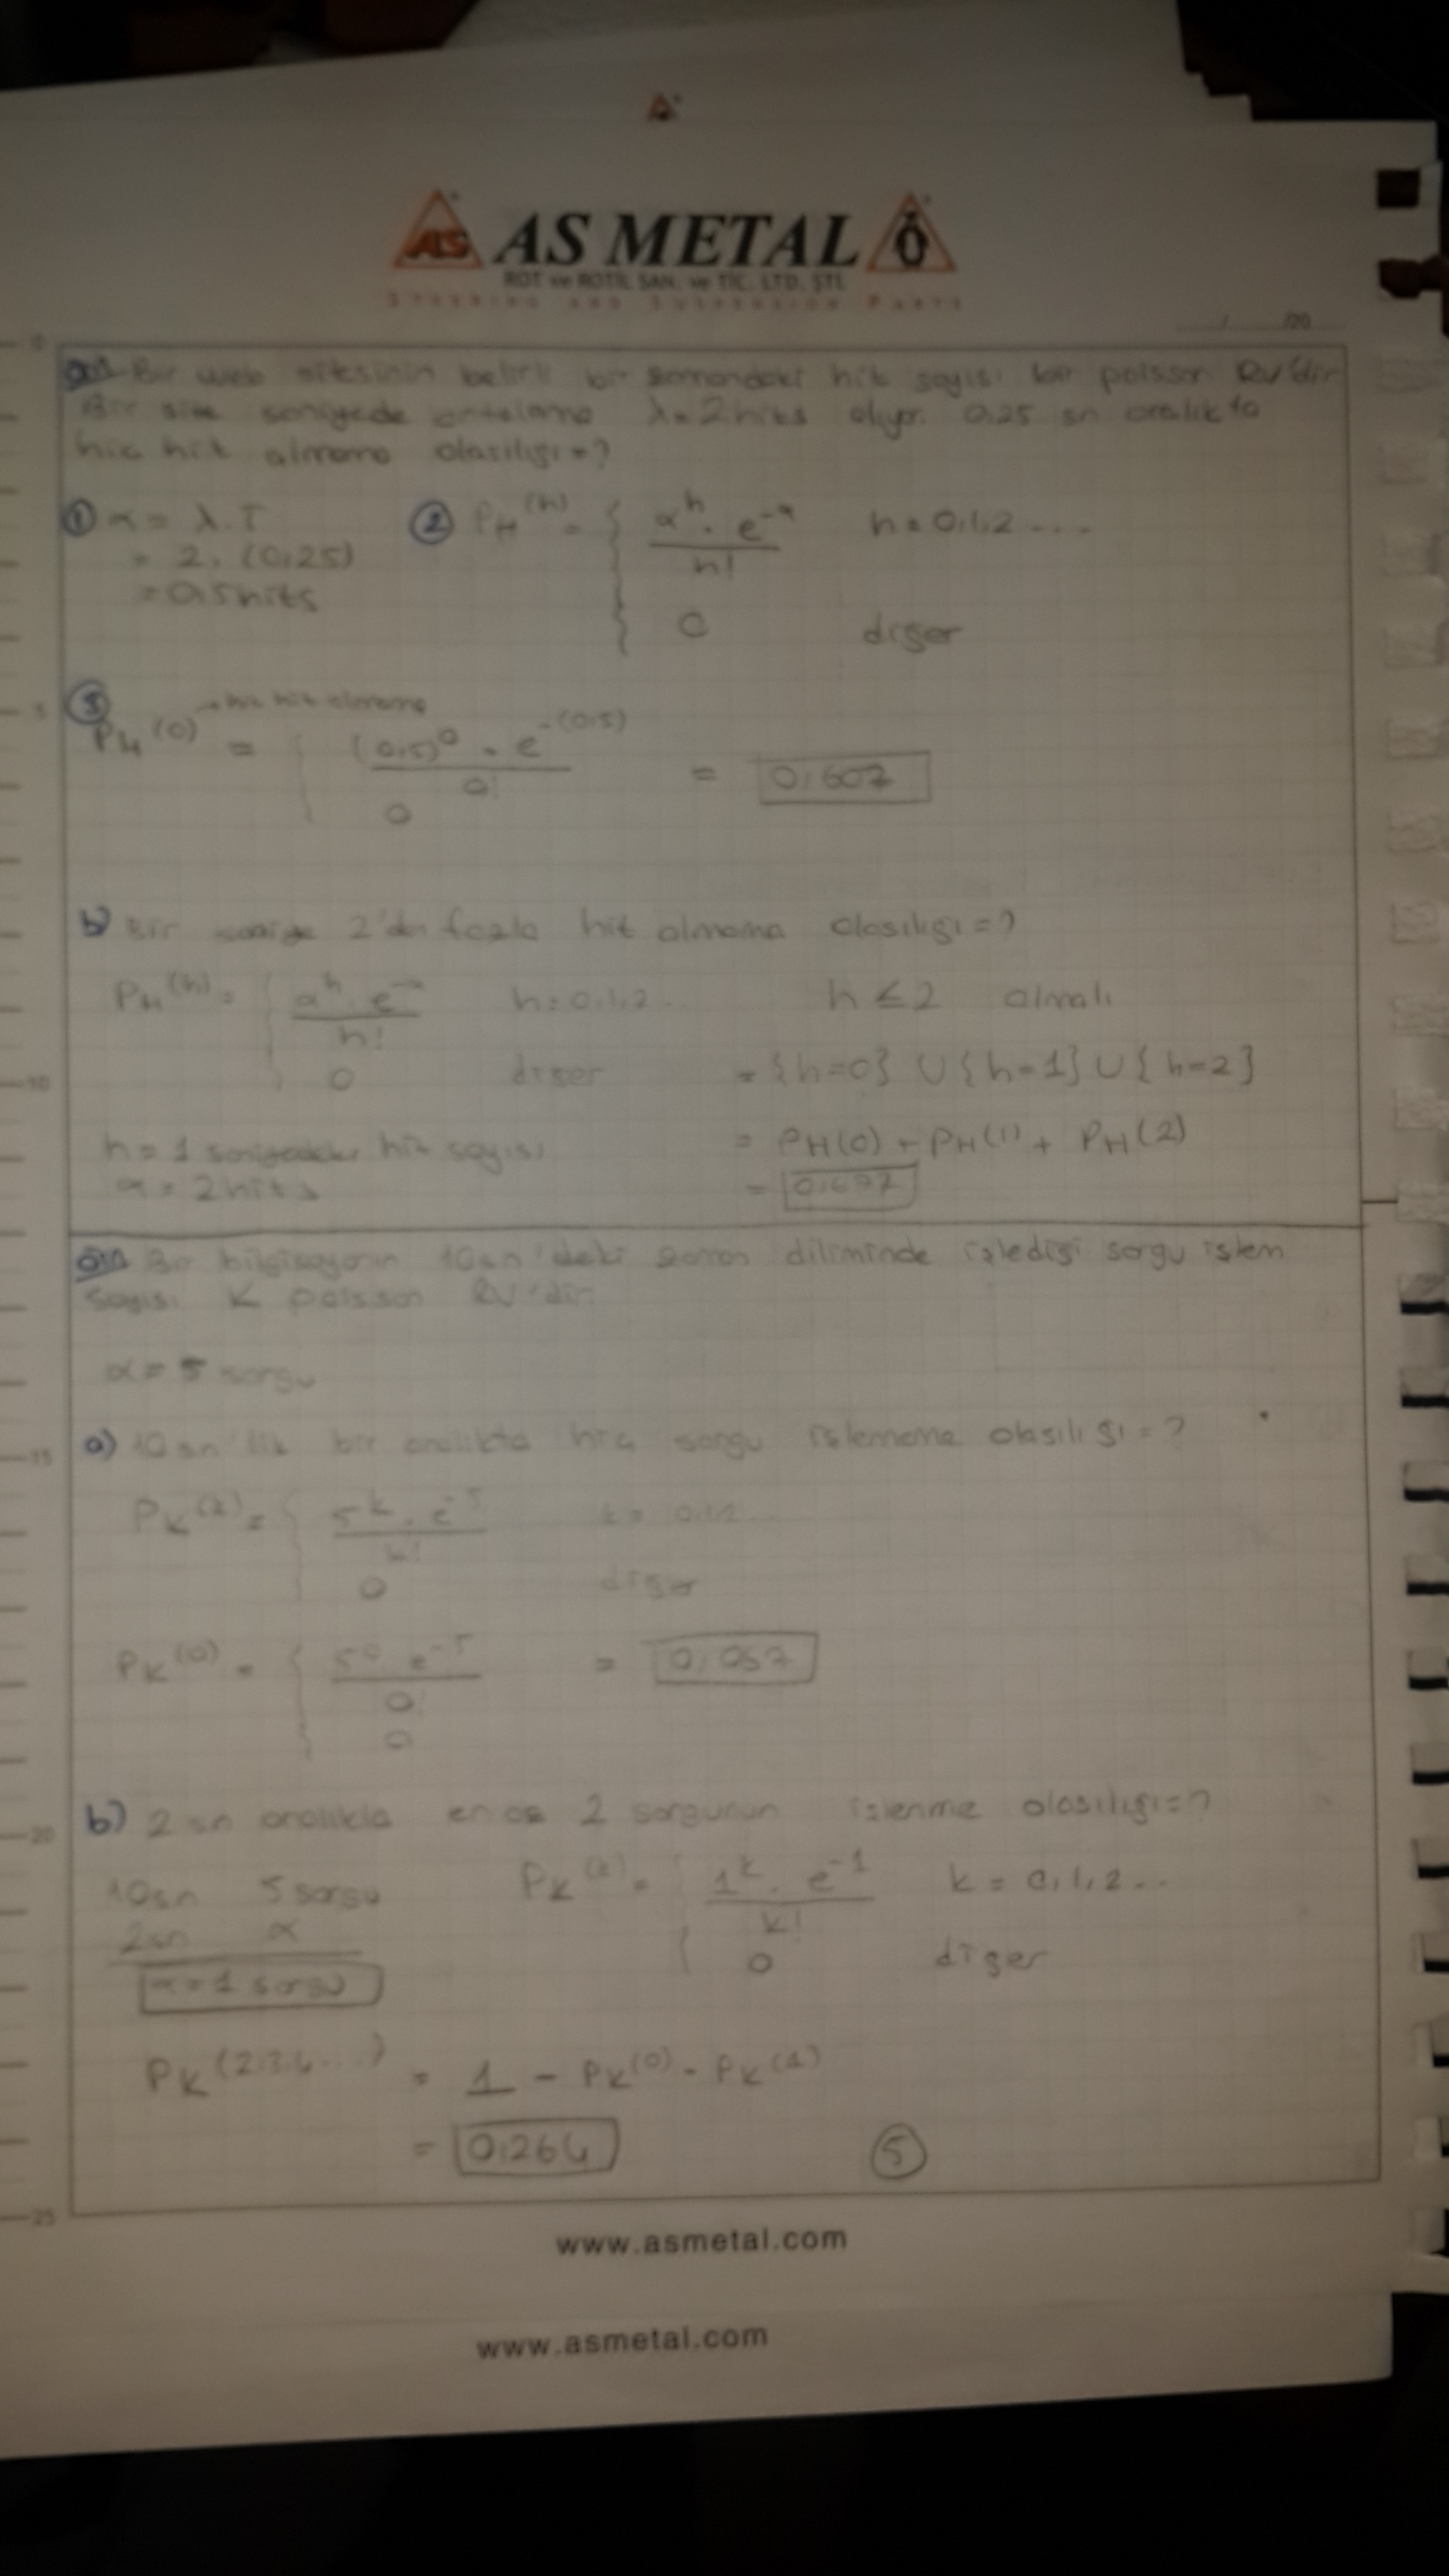 ALS AS METAL
ROT ve ROTİL SAN. ve TİC. LTD. ŞTİ.
STEERING AND SUSPENSION PARTS
/ /20
Bir web sitesinin belirli bir zamandaki hit sayısı bir poisson RV'dir
Bir site saniyede ortalama λ=2hits alıyor. 0,25 sn aralıkta
hiç hit almama olasılığı=?
① α = λ.T
= 2. (0,25)
= 0,5 hits
② P_H(h) = { α^h . e^-α / h! h = 0,1,2 ...
0 diğer
③ → hiç hit almama
P_H(0) = { (0,5)^0 . e^-(0,5) / 0! = 0,607
0
b) Bir saniye 2'den fazla hit almama olasılığı=?
P_H(h) = { α^h . e^-α / h! h=0,1,2.. h ≤ 2 olmalı
0 diğer = {h=0} ∪ {h=1} ∪ {h=2}
h = 1 saniyedeki hit sayısı = P_H(0) + P_H(1) + P_H(2)
α = 2 hits =
Bir bilgisayarın 10sn'deki zaman diliminde işlediği sorgu işlem
sayısı K poisson RV'dir.
α = 5 sorgu
a) 10sn'lik bir aralıkta hiç sorgu işlememe olasılığı = ?
P_K(k) = { 5^k . e^-5 / k!
0 diğer
P_K(0) = { 5^0 . e^-5 / 0! =
0
b) 2 sn aralıkla en az 2 sorgunun işlenme olasılığı=?
10sn 5 sorgu
2sn α
α = 1 sorgu
P_K(k) = { 1^k . e^-1 / k! k = 0,1,2..
0 diğer
P_K(2,3,4...) = 1 - P_K(0) - P_K(1)
= 0,264
⑤
www.asmetal.com
www.asmetal.com
0
5
10
15
20
25